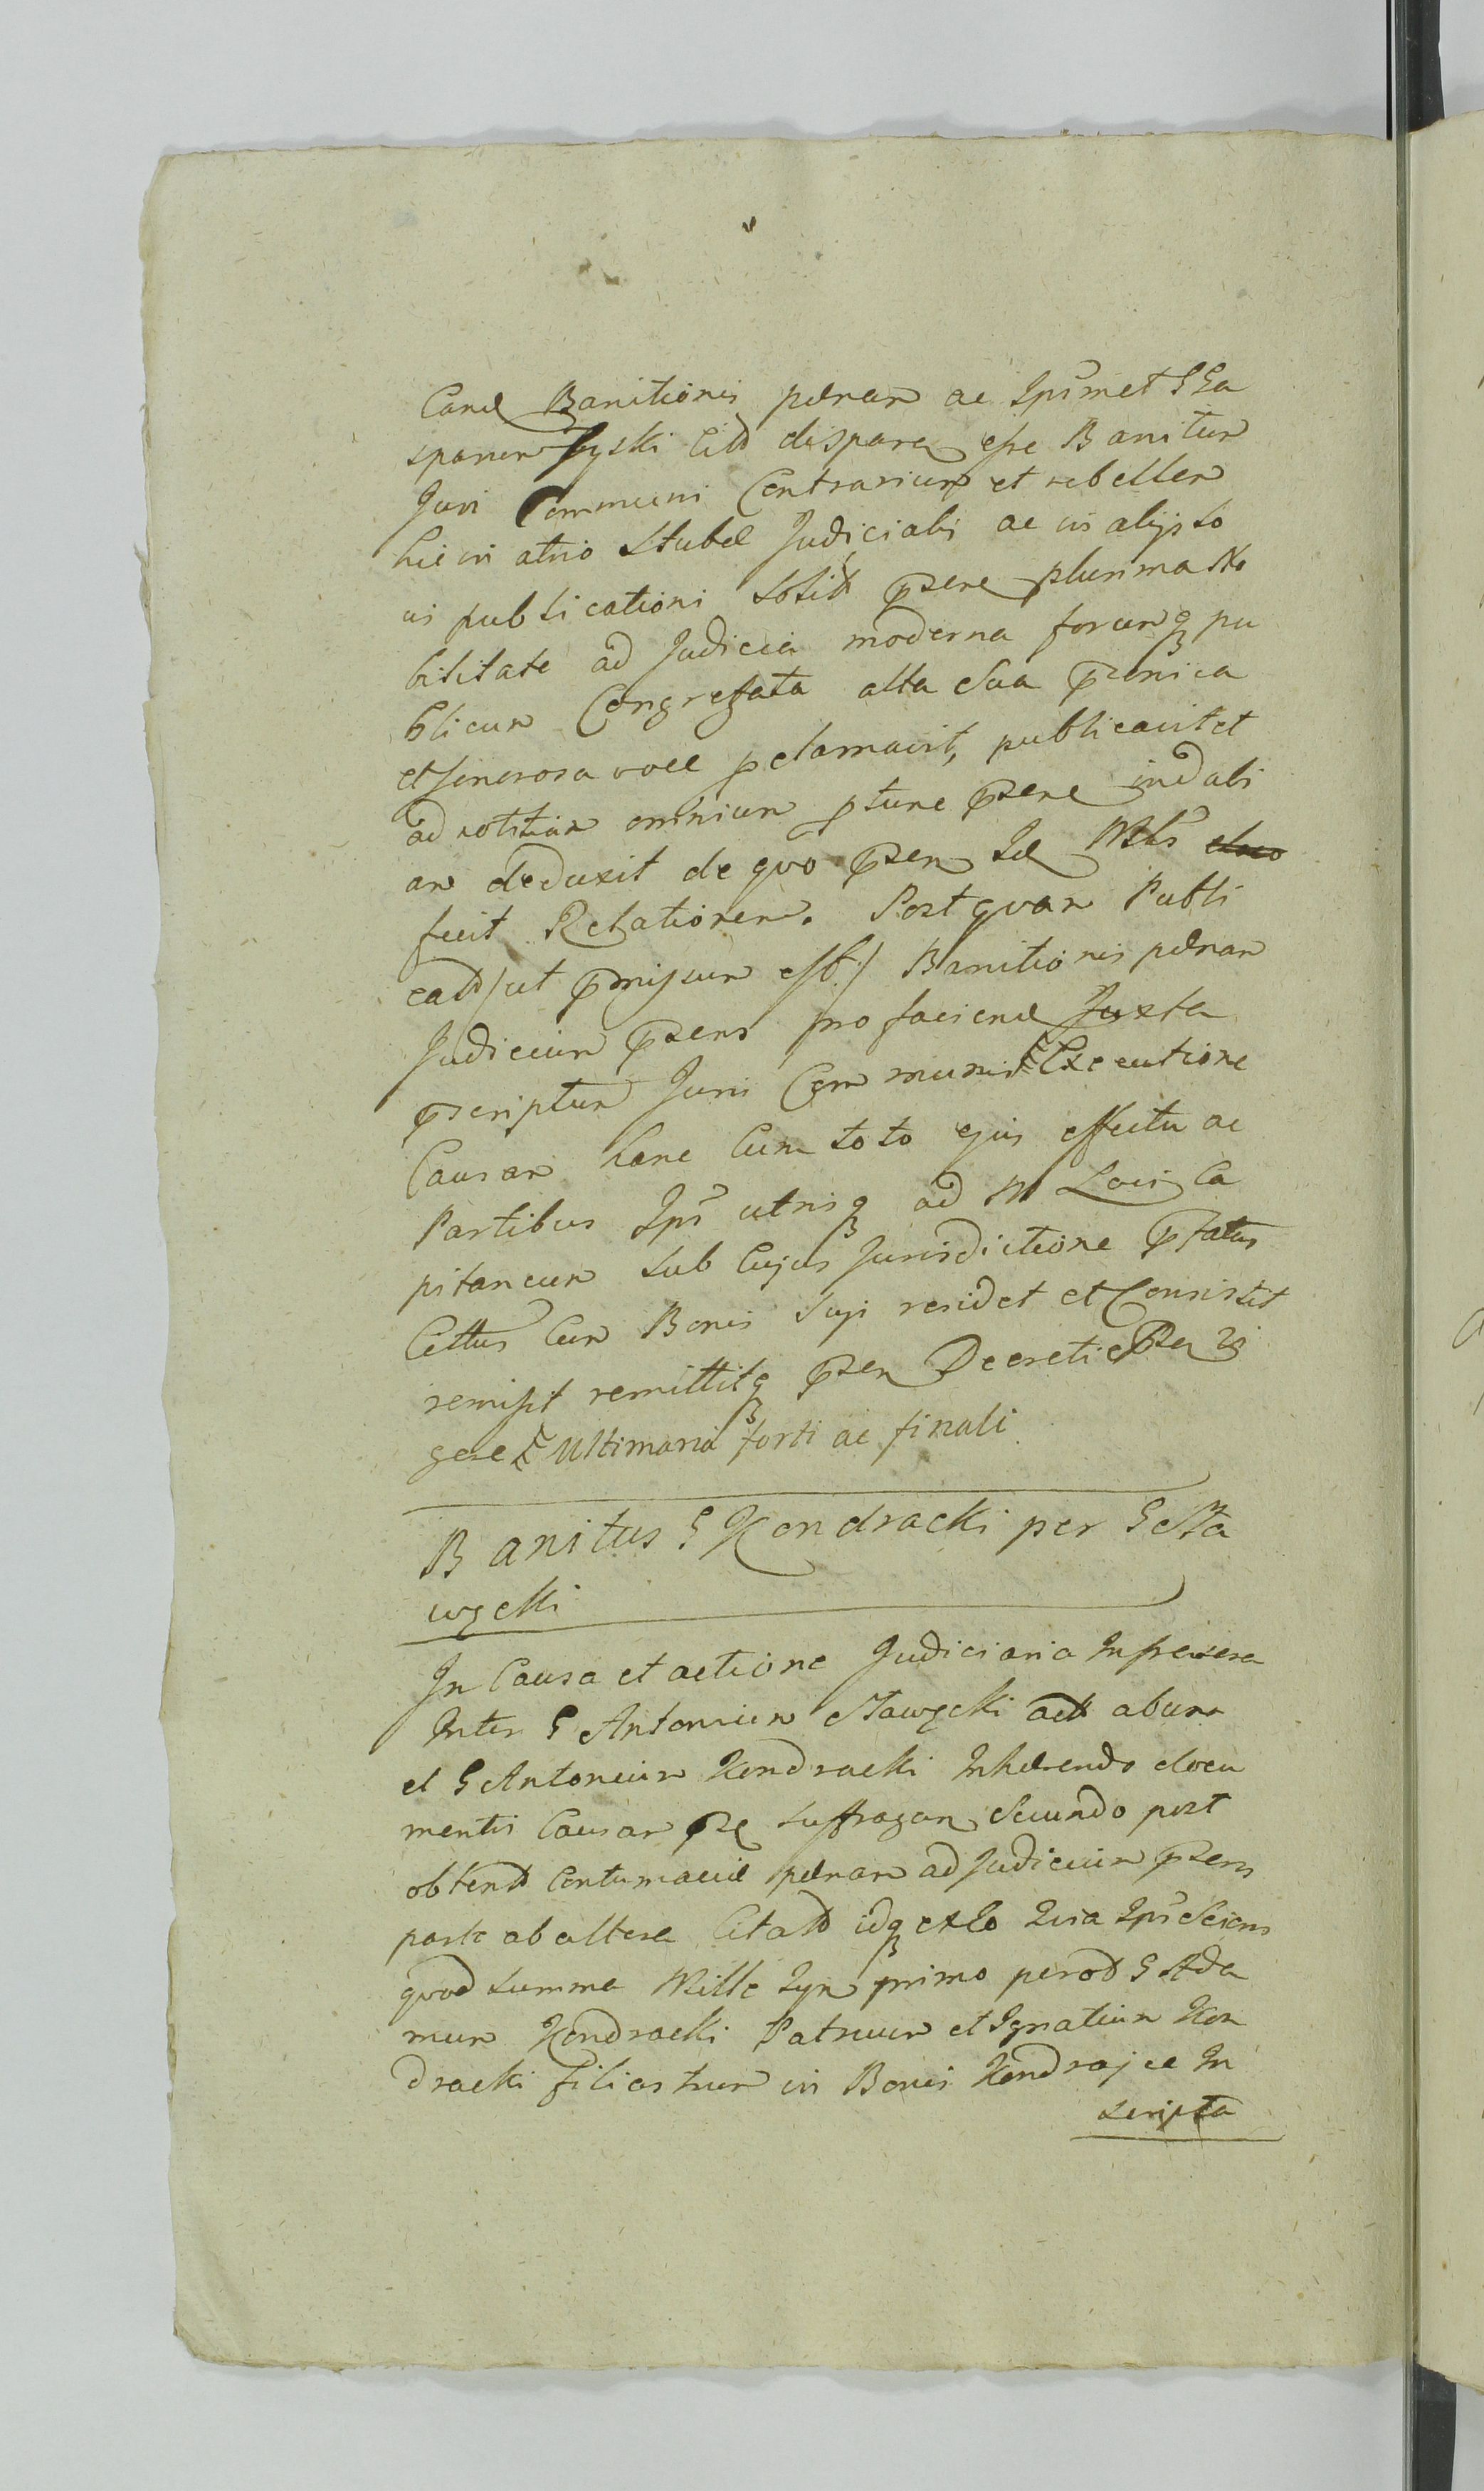 Cand Banitionis pænam ac Ipsmet G Ga
sparem Łyski Citt disparem esse Banitum
Juri Communi Contrarium et rebellem
hic in atrio Stubæ Judicialis ac in alijs lo
cis publicationi solitis psene plurima No
bilitate ad Judicia moderna forumq pu
blicum Congregata alta sua pconica
et sonorosa voce pclamavit, publicavit et
ad notitiam omnium ptunc psene indubi
am deduxit de quo psen Se Mls
fecit Relationem. Post quam Publi
catt /ut pmissum est:/ Banitionis pænam
Judicium psens pro faciend Juxta
pscriptum Juris Communis Executione
Causam hanc Cum toto ejus effectu ac
Partibus Ips utrisq ad M Loci Ca
pitaneum sub Cujus Jurisdictione pfatus
Cittus Cum Bonis suis residet et Consistit
remisit remittitq psen Decreti
gere Ultimaria forti ac finali
Banitus G Kondracki per G Sta
wecki
In Causa et actione Judiciaria Infrascra
Inter G Antonium Stawecki act ab una
et G Antonium Kondracki Inhærendo docu
mentis Causam suffragan Secundo post
obtent Contumaciæ pænam ad Judicium psens
parte ab altera Citatt idq ex Eo Quia Ips Sciens
quod summa Mille primo perod G Ada
mum Kondracki Patruum et Ignatium Kon
dracki filiastrum in Bonis Kondrajce In
scripta